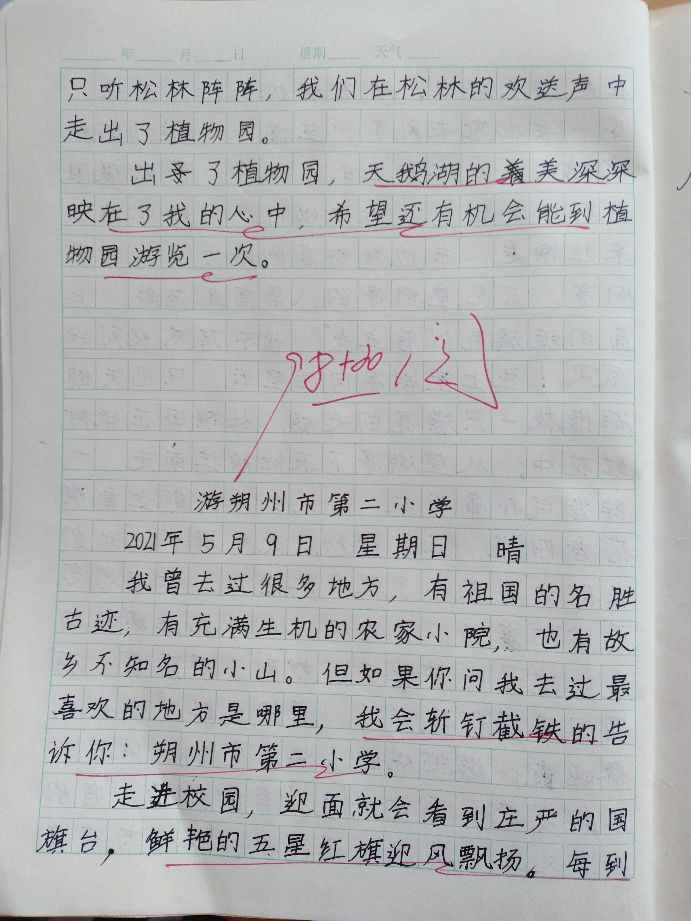 年 月 日 星期 天气
只听松林阵阵，我们在松林的欢送声中
走出了植物园。
出了植物园，天鹅湖的美深深
映在了我的心中，希望还有机会能到植
物园游览一次。
阅
游朔州市第二小学
2021年5月9日 星期日 晴
我曾去过很多地方，有祖国的名胜
古迹，有充满生机的农家小院，也有故
乡不知名的小山。但如果你问我去过最
喜欢的地方是哪里，我会斩钉截铁的告
诉你：朔州市第二小学。
走进校园，迎面就会看到庄严的国
旗台，鲜艳的五星红旗迎风飘扬。每到